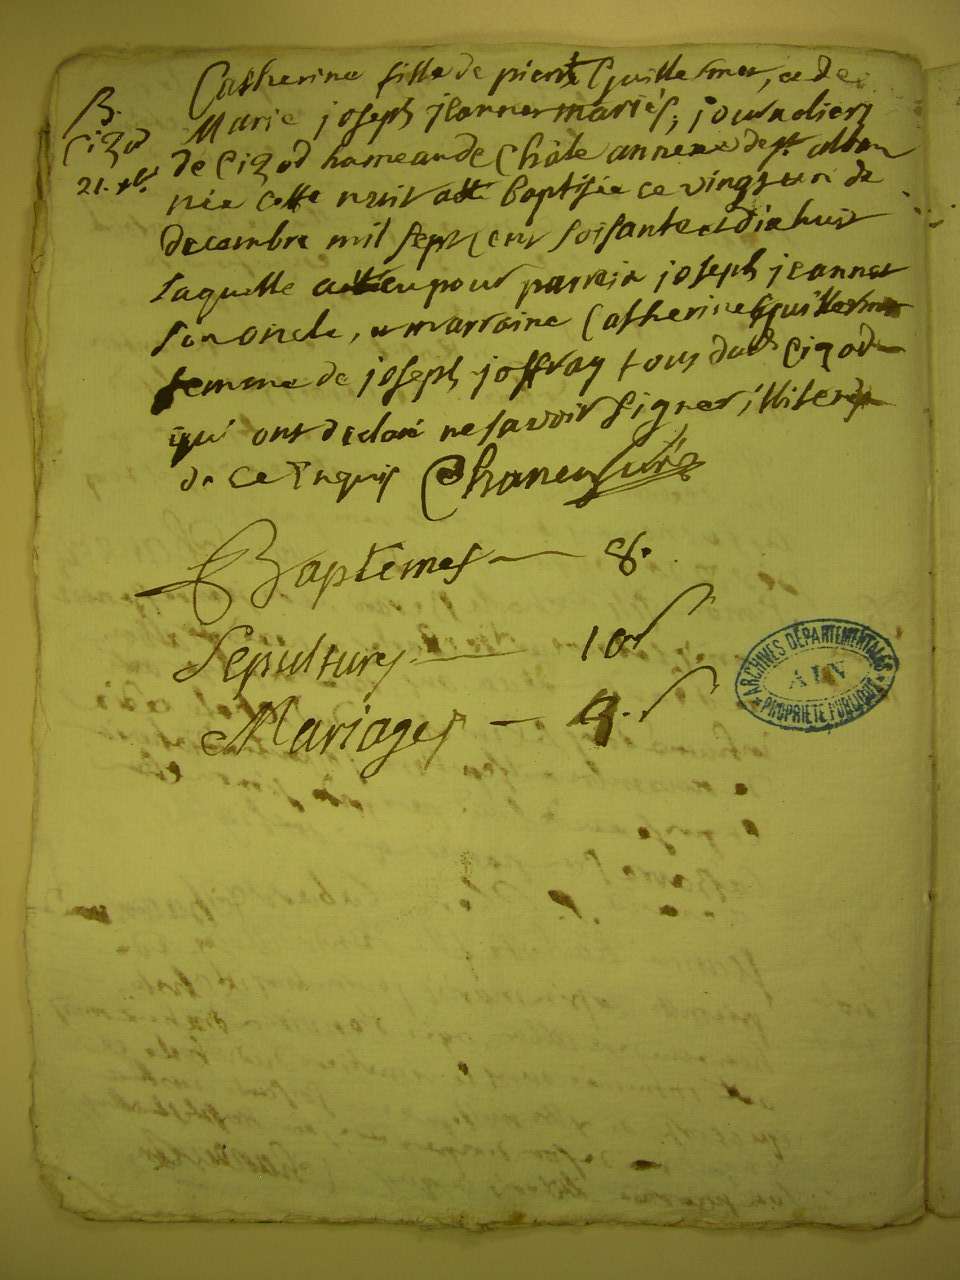 B.
Cizod
21. xbr
Catherine fille de pierre Guillermet, et de
Marie joseph jeannet mariés, journaliers
de Cizod hameau de Châle annexe de st alban
née cette nuit a été baptisée ce vingt un de
decembre mil sept cent soisante et dix huit
laquelle a eu pour parrein joseph jeannet
son oncle, et marraine Catherine Guillermet
femme de joseph joffray tous dud. Cizod
qui ont declaré ne savoir signer, illiterés
de ce Enquis Chaneu Curé
Baptemes — 8.
Sepultures — 10
Mariages — 4.
ARCHIVES DÉPARTEMENTALES
AIN
PROPRIÉTÉ PUBLIQUE